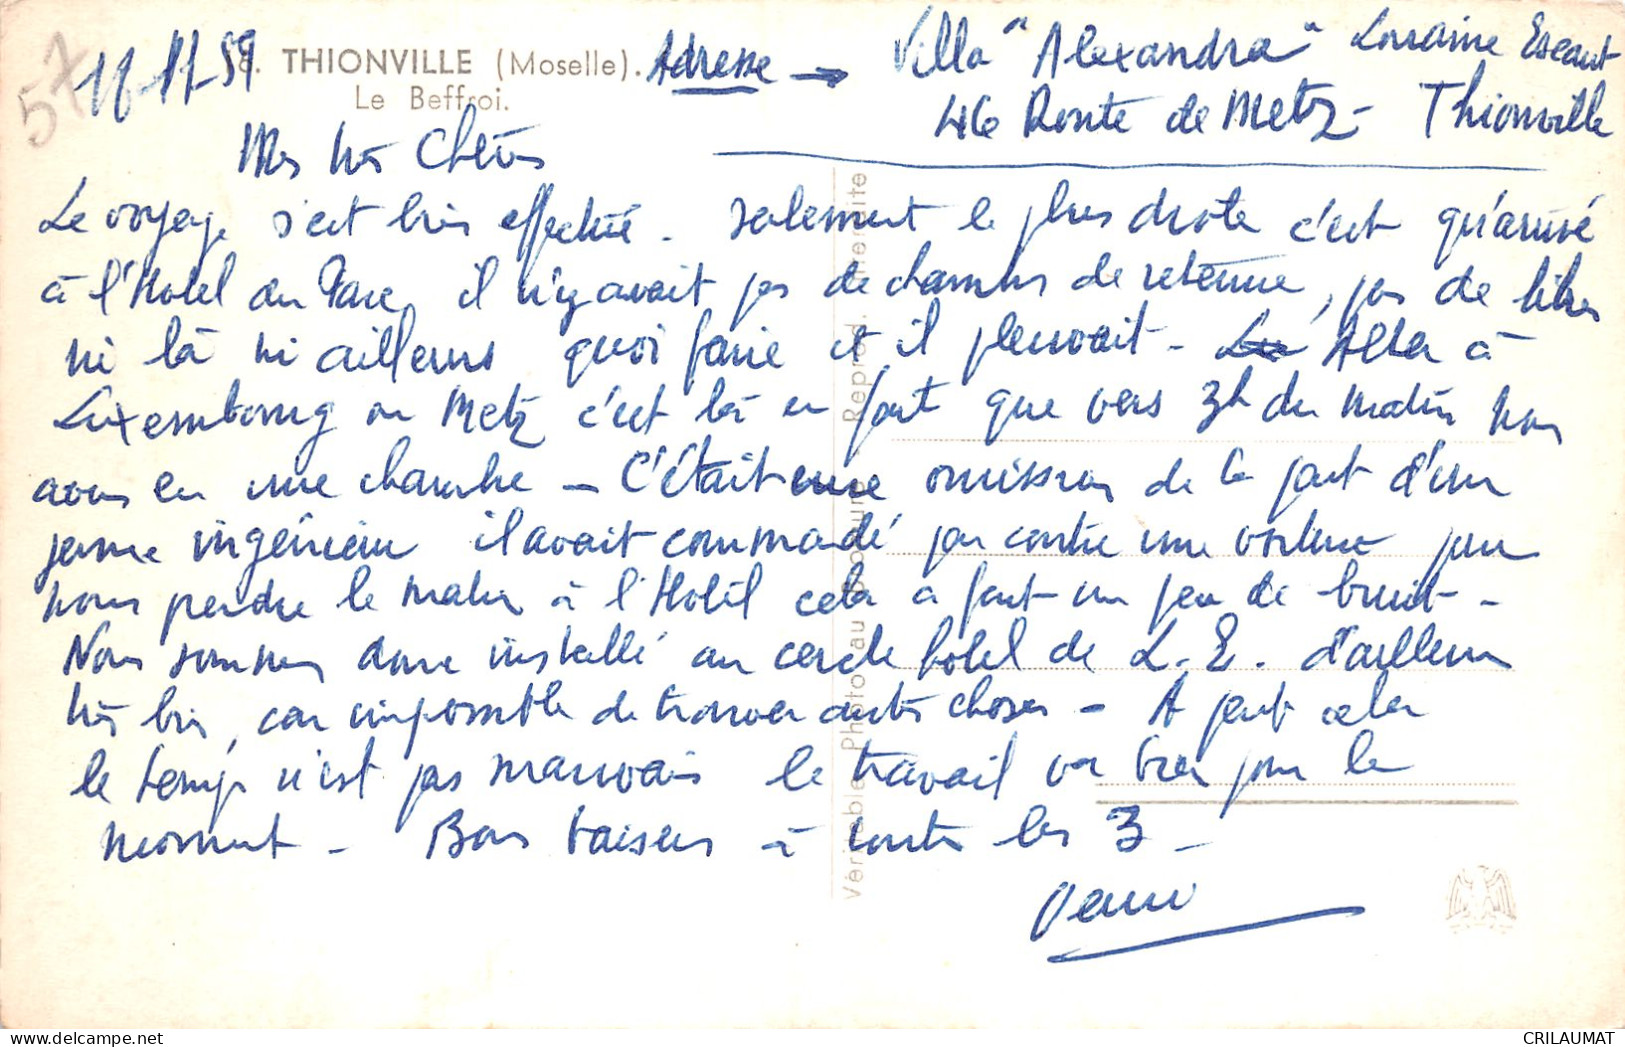 57
11-11-59
8. THIONVILLE (Moselle).
Le Beffroi.
Adresse → Villa "Alexandra" Lorraine Escaut
46 Route de Metz - Thionville
Mes très Chers
Le voyage s'est très effectué. seulement le plus drole c'est qu'arrivé
à l'Hotel du Parc, il n'y avait pas de chambres de retenue, pas de libres
ni là ni ailleurs quoi faire et il pleuvait - Aller à
Luxembourg ou Metz c'est là en fait que vers 3h du matin nous
avons eu une chambre - C'était une omission de la part d'un
jeune ingénieur il avait commandé par contre une voiture pour
nous prendre le matin à l'Hotel cela a fait un peu de bruit -
Nous sommes donc installé au cercle hotel de L.E. d'ailleurs
très bien, car impossible de trouver autres choses - A part cela
le temps n'est pas mauvais le travail va bien pour le
moment - Bons baisers à toutes les 3 -
Véritable Photo au Reprod. Interdite
CRILAUMAT